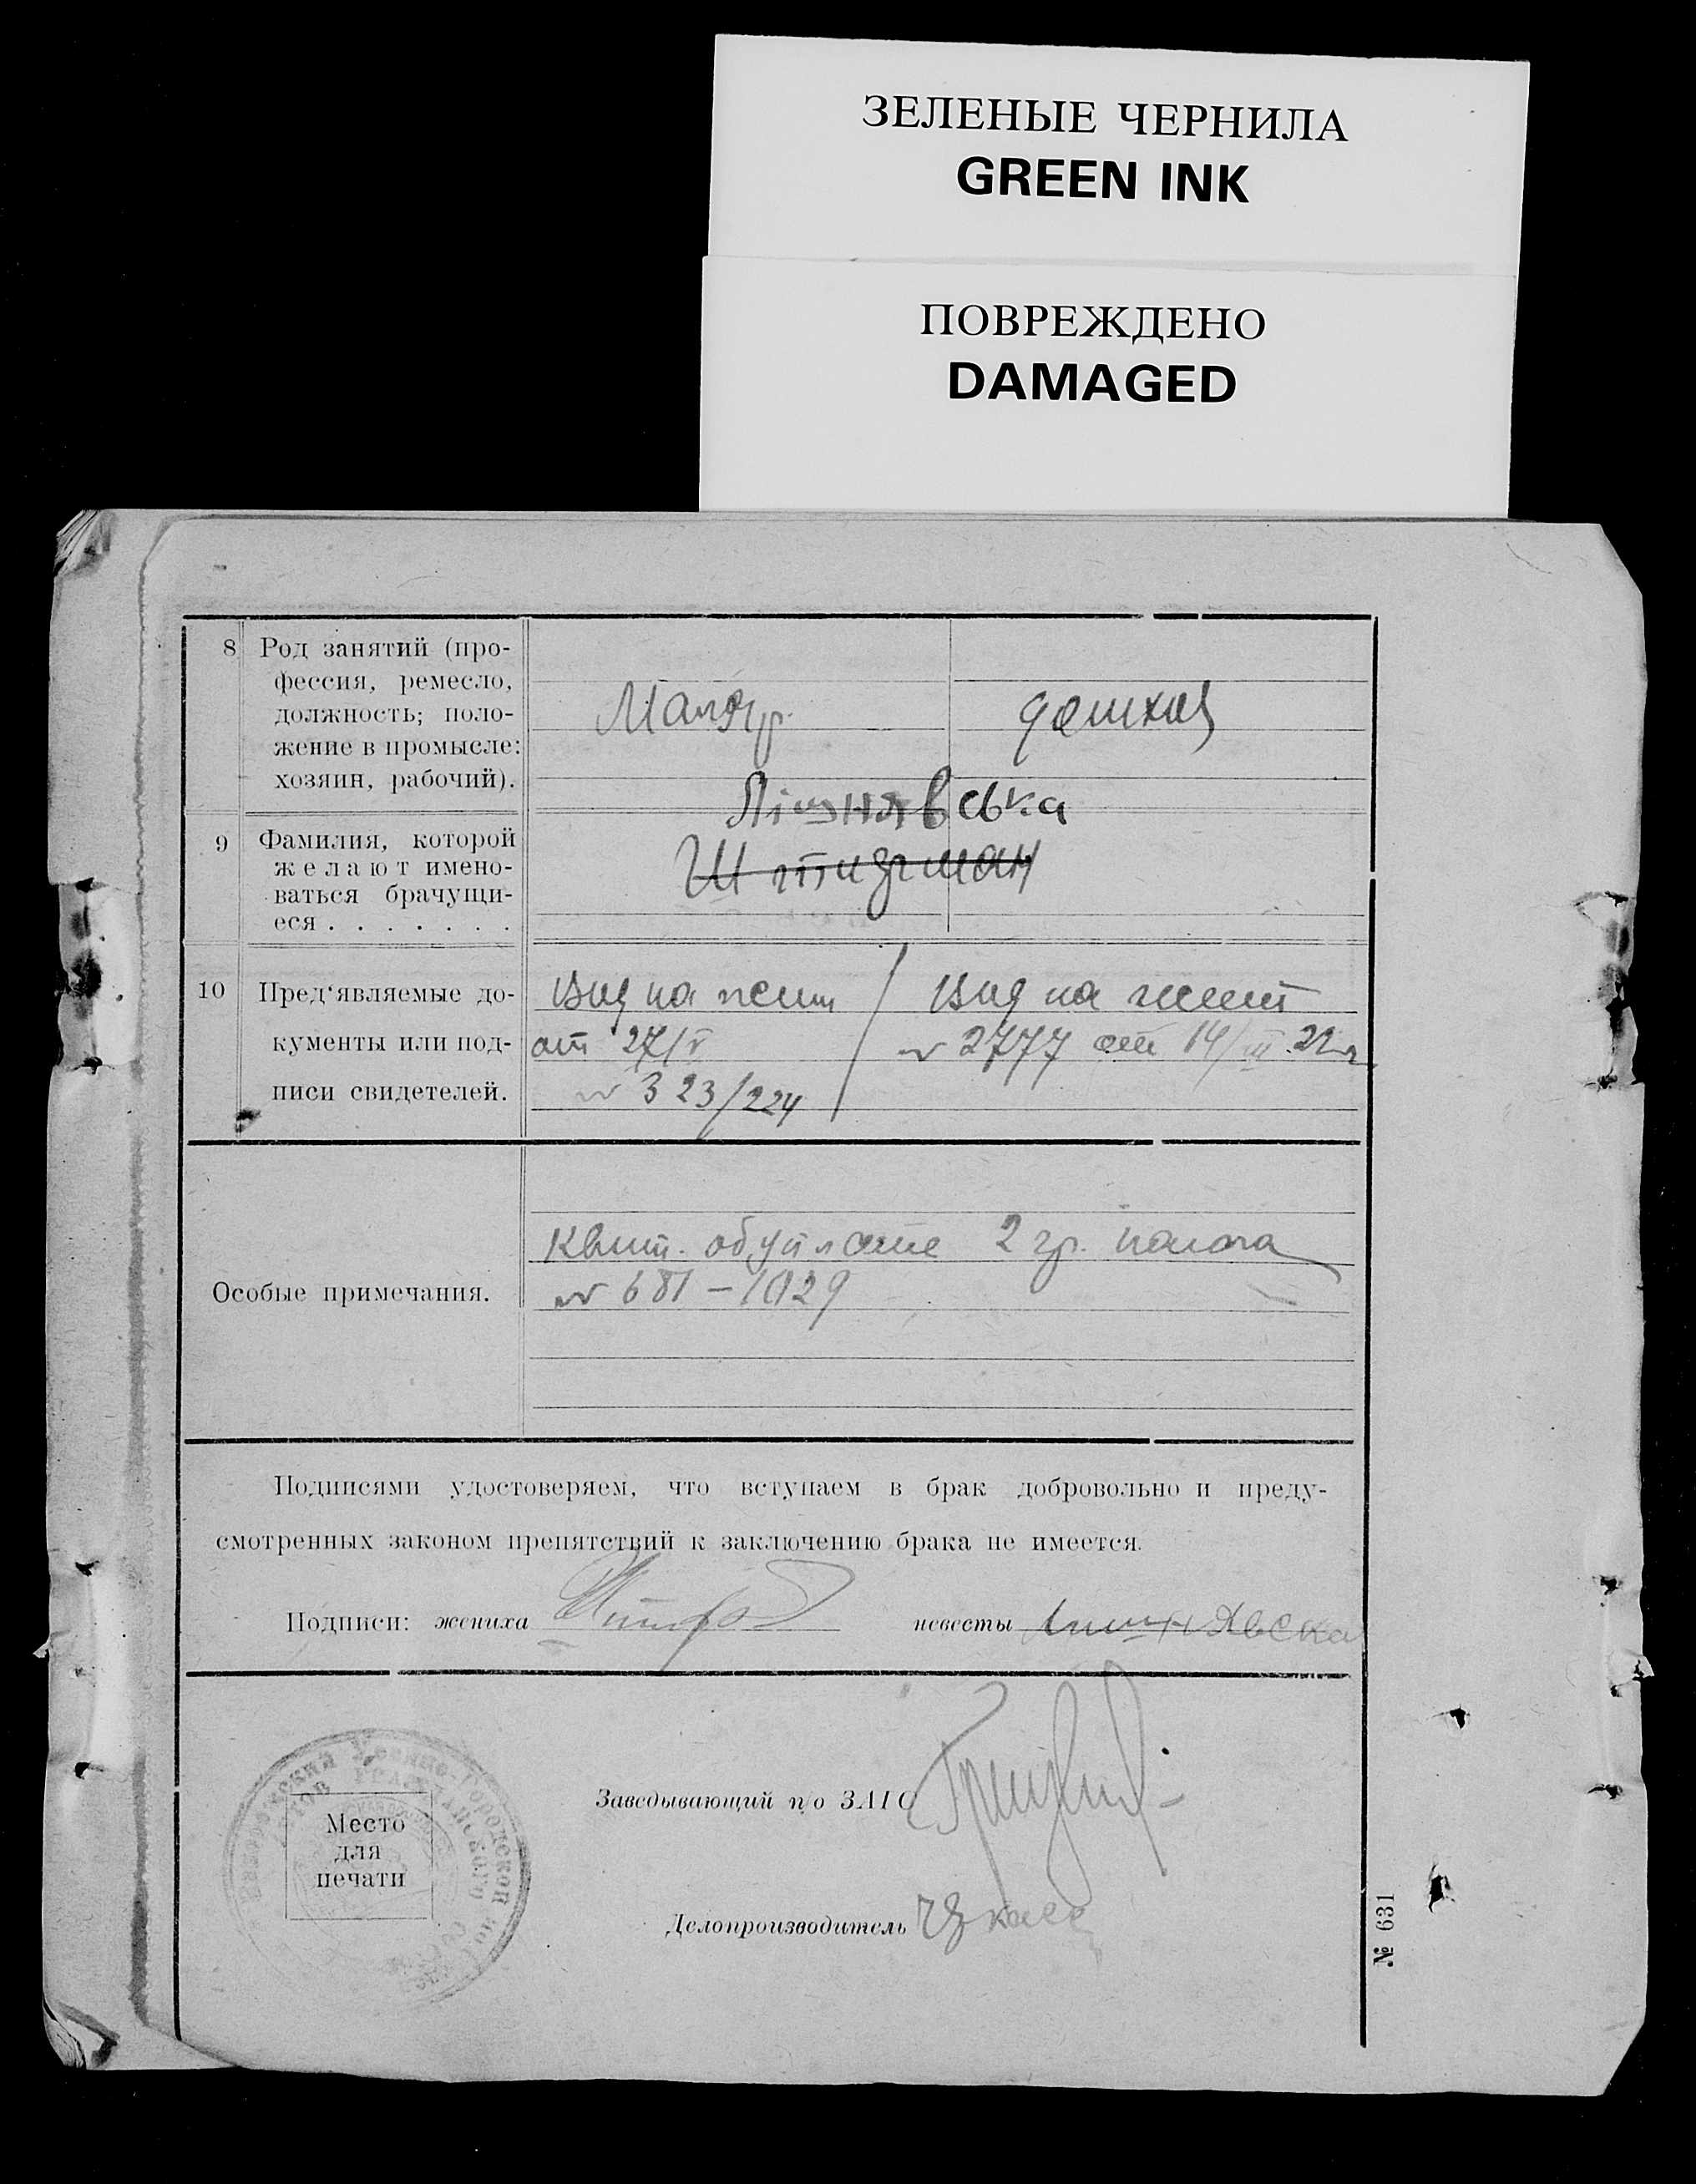 ЗЕЛЕНЫЕ ЧЕРНИЛА
GREEN INK
ПОВРЕЖДЕНО
DAMAGED
8 Род занятий (про-
фессия, ремесло,
должность; поло-
жение в промысле:
хозяин, рабочий).
Маляр
9 Фамилия, которой
желают имено-
ваться брачущи-
еся . . . . . . .
Лішнявська
10 Пред‘являемые до-
кументы или под-
писи свидетелей.
Вид на жит / Вид на жит
от 27/V
№ 2777 от 14/III 22г
№ 323/224
Особые примечания.
Квит. об уплате 2 гр.
№ 681 – 1029
Подписями удостоверяем, что вступаем в брак добровольно и преду-
смотренных законом препятствий к заключению брака не имеется.
Подписи: жениха невесты
Заведывающий п/о ЗАГС
Место
для
печати
Делопроизводитель
№ 631